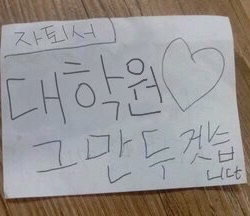 자퇴서
대학원♡
그만두겟습
니다